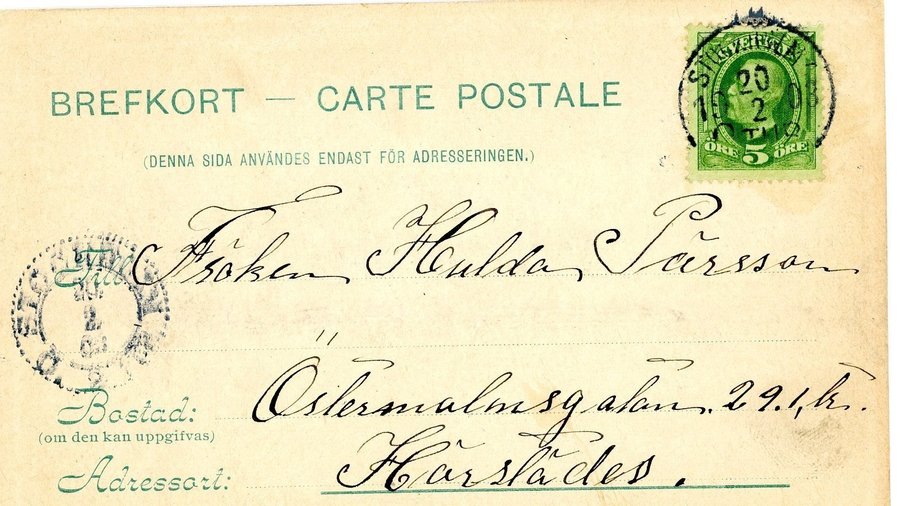 BREFKORT — CARTE POSTALE
(DENNA SIDA ANVÄNDES ENDAST FÖR ADRESSERINGEN.)
SVERIGE
20
2
ÖRE 5 ÖRE
Till Fröken Hulda Pärsson
Östermalmsgatan. 29. 1, tr.
Bostad:
(om den kan uppgifvas)
Adressort: Härstädes.